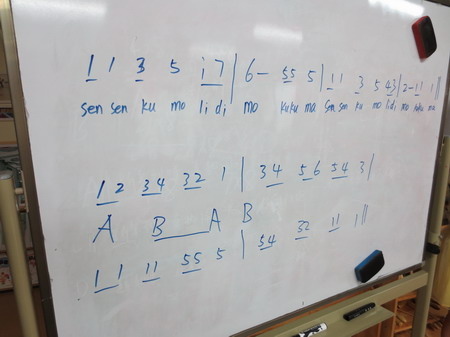 1 1 3 5 i 7 | 6 - 55 5 | 11 3 5 43 | 2 - 11 1 ||
sen sen ku mo li di mo kuku ma sen sen ku mo lidi mo kuku ma
12 34 32 1 | 34 56 54 3 |
A B A B
11 11 55 5 | 54 32 11 1 ||